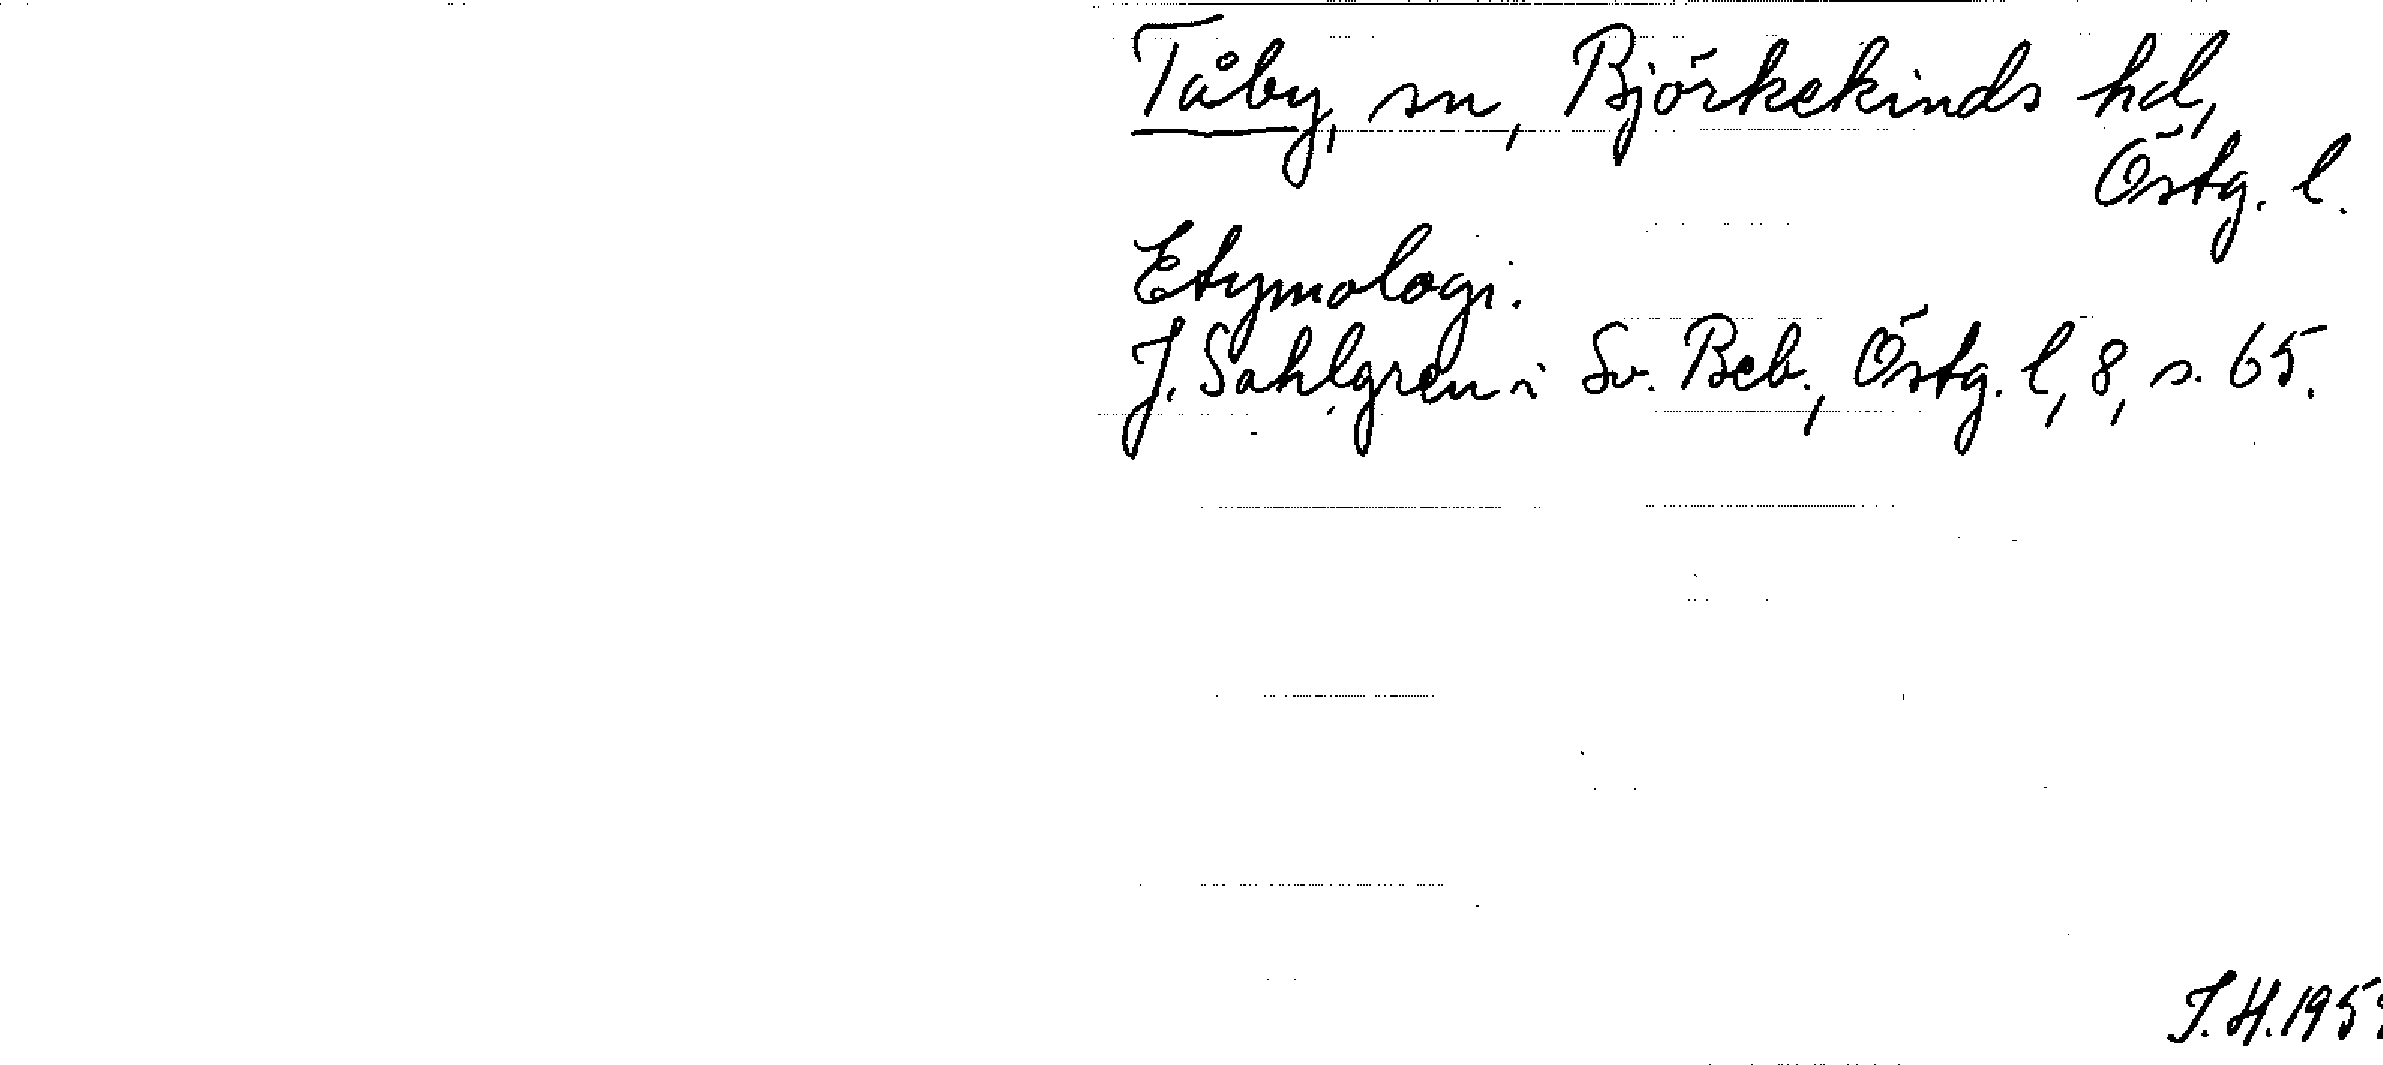 Tåby, sn, Björkekinds hd,
Östg. l.
Etymologi.
J. Sahlgren i Sv. Beb., Östg. l, 8, s. 65.